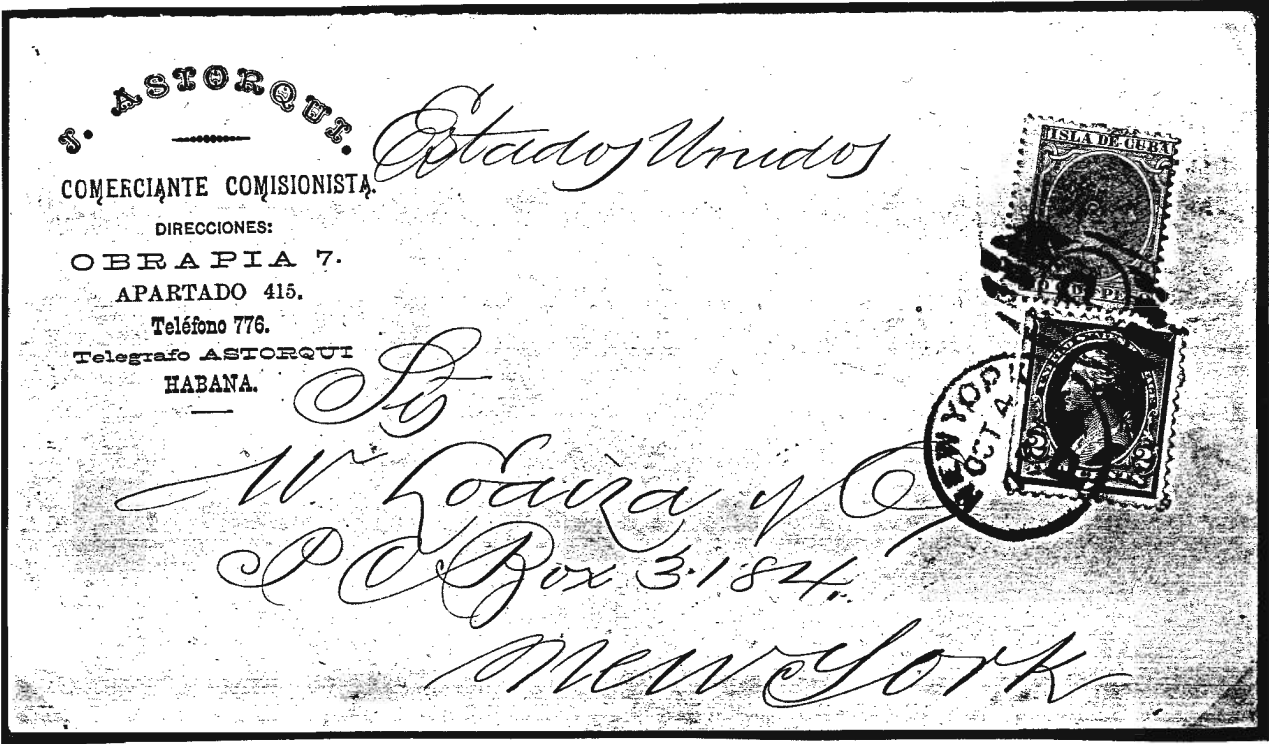 J. ASTORQUI.
COMERCIANTE COMISIONISTA.
DIRECCIONES:
OBRAPIA 7.
APARTADO 415.
Teléfono 776.
Telegrafo ASTORQUI
HABANA.
Estados Unidos
W. Loaiza y Co
P O Box 3.184.
New York
ISLA DE CUBA
NEW YORK
OCT 4
2 2